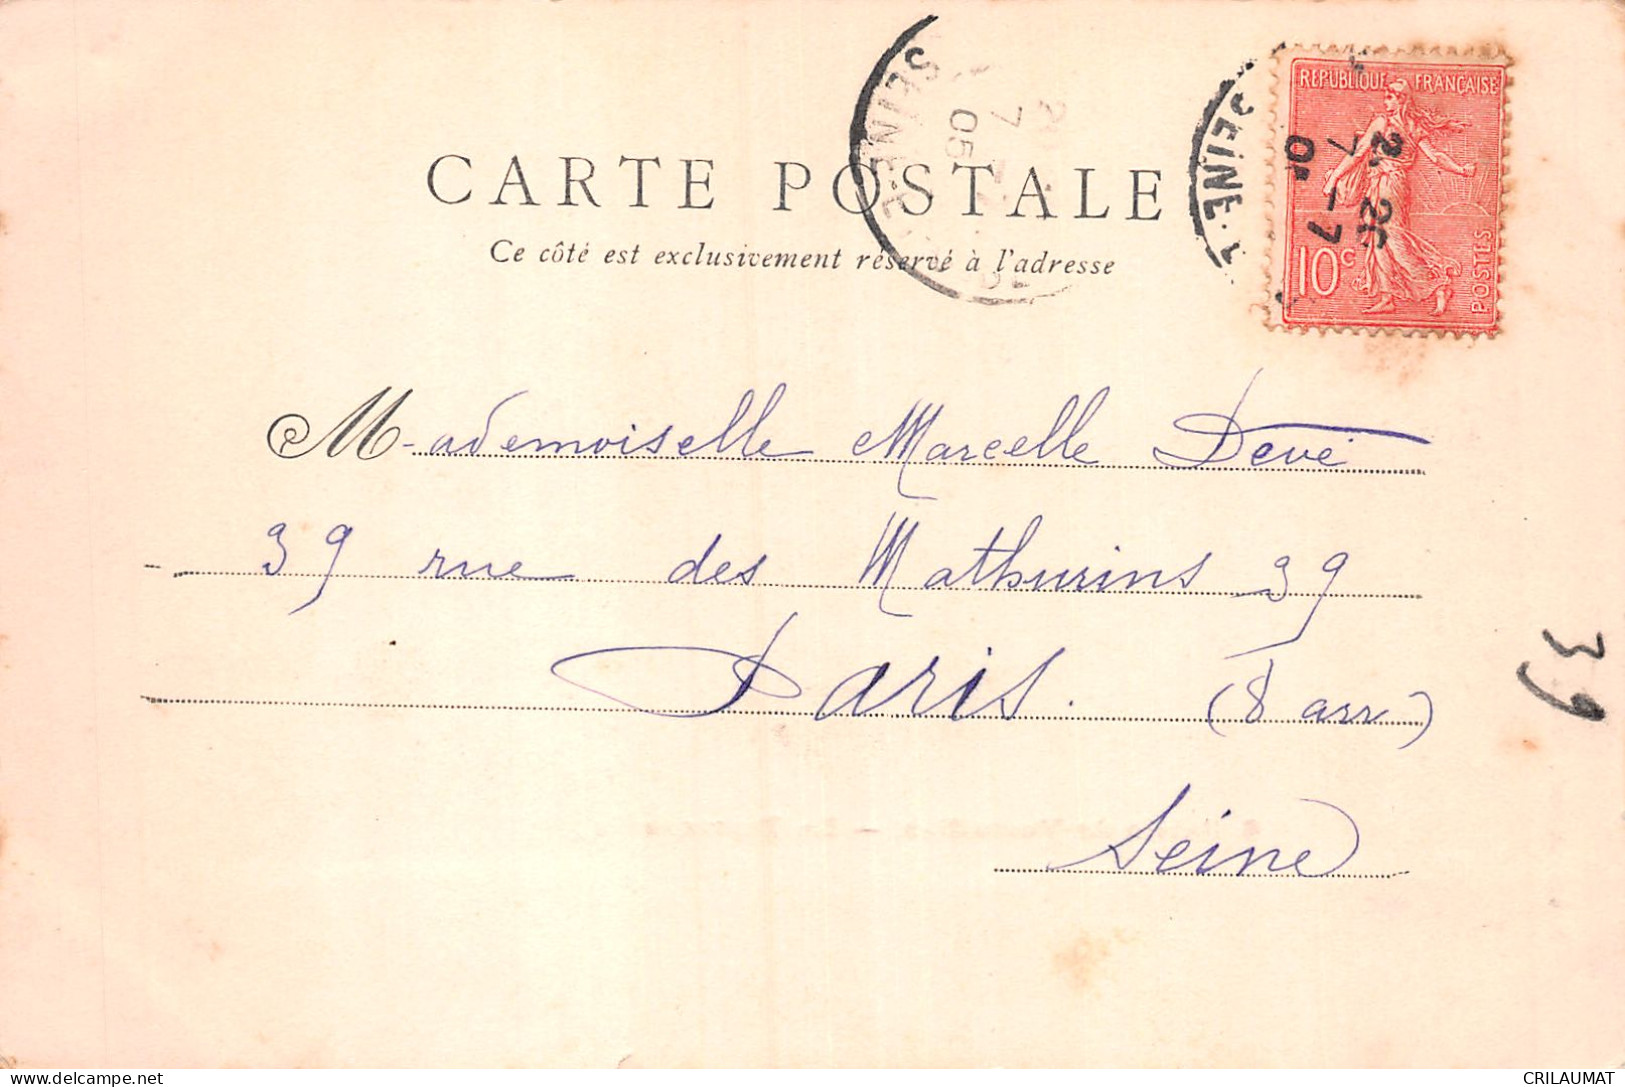 CARTE POSTALE
Ce côté est exclusivement réservé à l'adresse
REPUBLIQUE FRANÇAISE
10 c
POSTES
SEINE
7
05
SEINE
7 -7
M-ademoiselle Marcelle Devé
39 rue des Mathurins 39
Paris. (8 arr)
Seine
39
CRILAUMAT